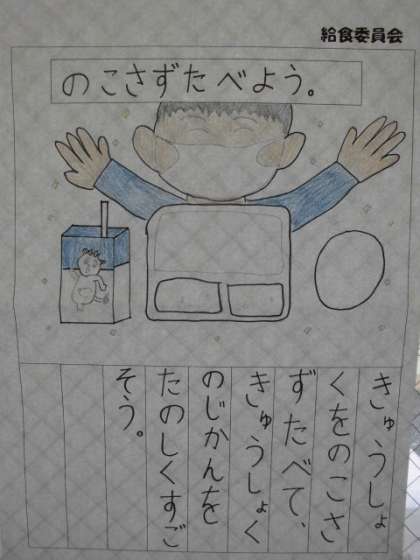 給食委員会
のこさずたべよう。
きゅうしょ
くをのこさ
ずたべて、
きゅうしょく
のじかんを
たのしくすご
そう。